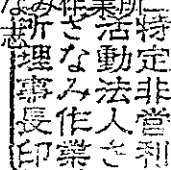 なみ作業所
志
特定非営利
活動法人さ
ざなみ作業
所理事長印